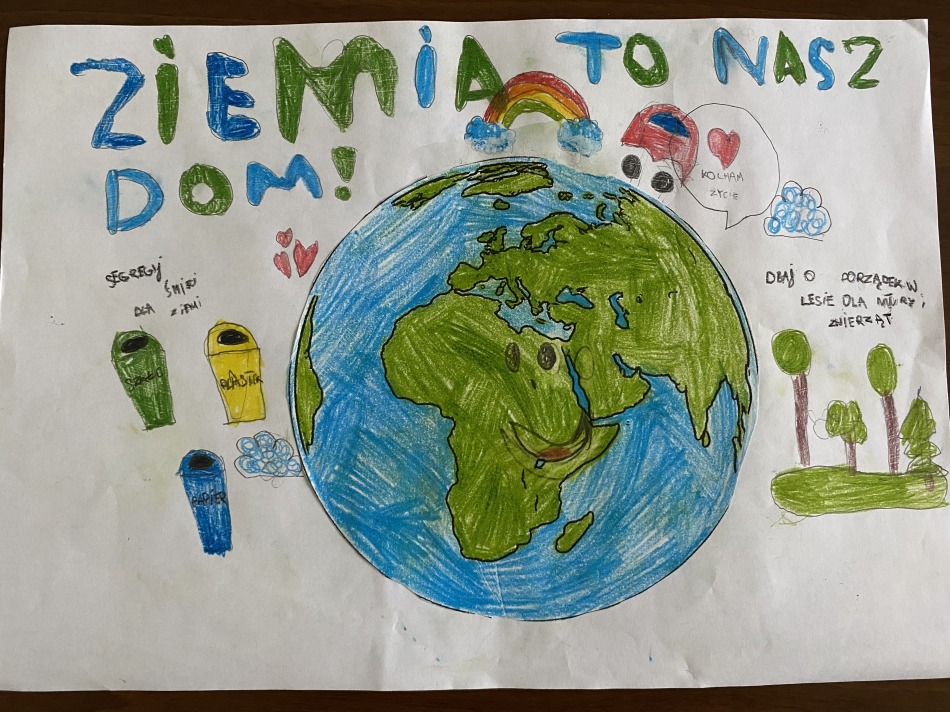 ZiEMiA TO NASZ
DOM!
KOCHAM
ŻYCIE
SEGREGUJ
ŚMIECI
DLA ZIEMI
DBAJ O PORZĄDEK W
LESIE DLA
ZWIERZĄT
SZKŁO
PLASTIK
PAPIER